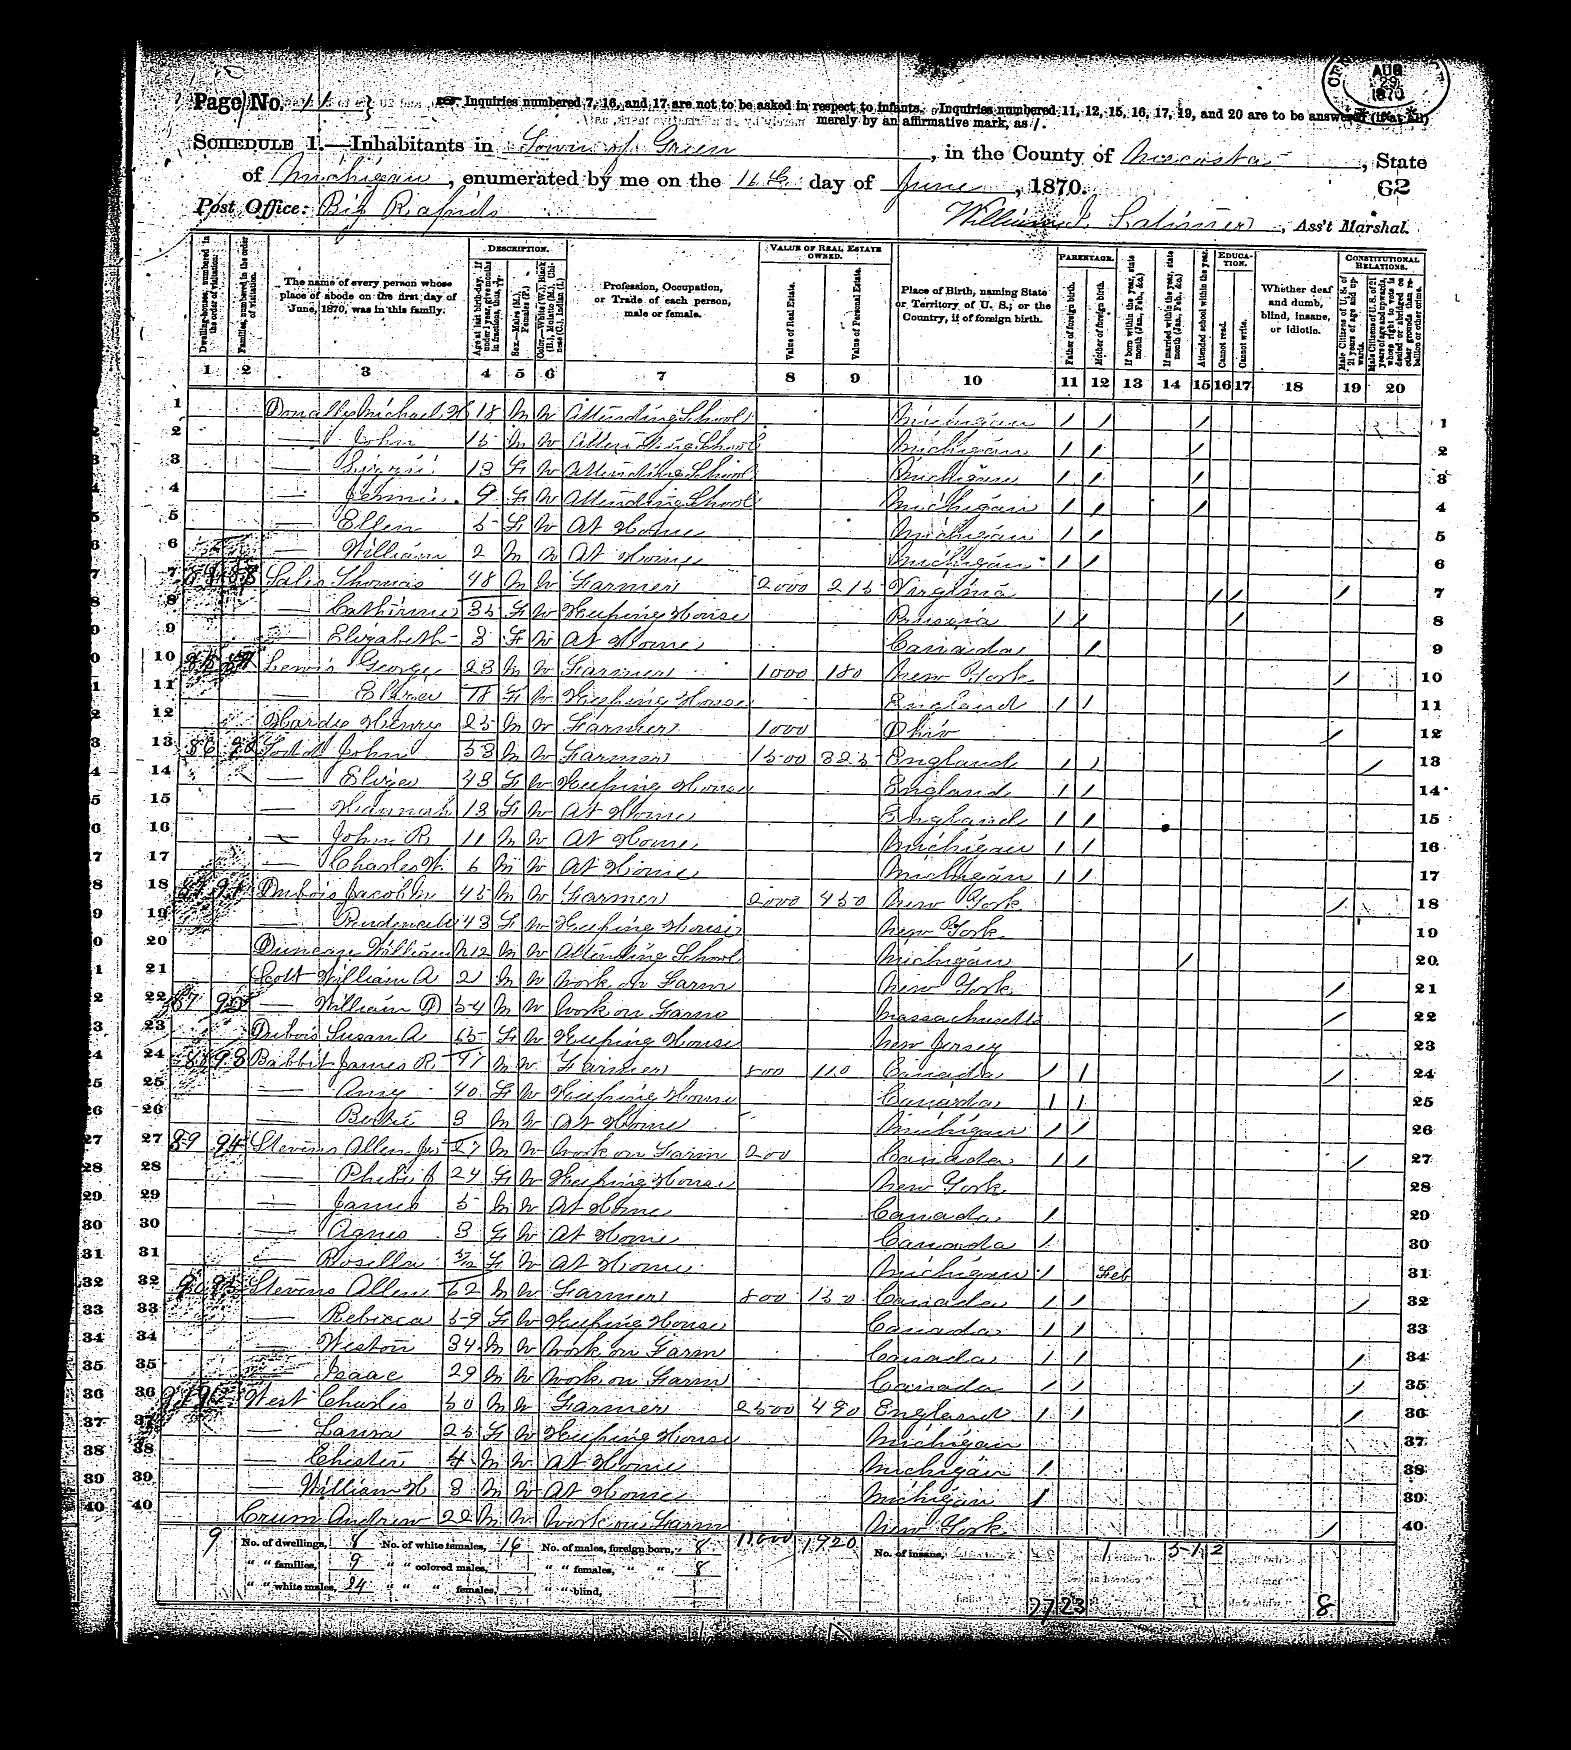 Page No. 11
Inquiries numbered 7, 16, and 17 are not to be asked in respect to infants. Inquiries numbered 11, 12, 15, 16, 17, 19, and 20 are to be answered (if at all)
merely by an affirmative mark, as /.
AUG 29 1870
SCHEDULE 1.—Inhabitants in Town of Green, in the County of Mecosta, State
of Michigan, enumerated by me on the 16th day of June, 1870.
62
Post Office: Big Rapids
William Latimer, Ass't Marshal.
Dwelling-houses, numbered in the order of visitation.
Families, numbered in the order of visitation.
The name of every person whose place of abode on the first day of June, 1870, was in this family.
DESCRIPTION.
Age at last birth-day. If under 1 year, give months in fractions, thus,
Sex.—Males (M.), Females (F.)
Color.—White (W.), Black (B.), Mulatto (M.), Chinese (C.), Indian (I.)
Profession, Occupation, or Trade of each person, male or female.
VALUE OF REAL ESTATE OWNED.
Value of Real Estate.
Value of Personal Estate.
Place of Birth, naming State or Territory of U. S.; or the Country, if of foreign birth.
PARENTAGE.
Father of foreign birth.
Mother of foreign birth.
If born within the year, state month (Jan., Feb., &c.)
If married within the year, state month (Jan., Feb., &c.)
Attended school within the year.
EDUCATION.
Cannot read.
Cannot write.
Whether deaf and dumb, blind, insane, or idiotic.
CONSTITUTIONAL RELATIONS.
Male Citizens of U. S. of 21 years of age and upwards.
Male Citizens of U. S. of 21 years of age and upwards, whose right to vote is denied or abridged on other grounds than rebellion or other crime.
1 2 3 4 5 6 7 8 9 10 11 12 13 14 15 16 17 18 19 20
1 Donally Michael H 18 M W Attending School Michigan / / / 1
2 — John 15 M W Attending School Michigan / / / 2
3 — Lizzie 13 F W Attending School Michigan / / / 3
4 — Jennie 9 F W Attending School Michigan / / / 4
5 — Ellen 5 F W At Home Michigan / / 5
6 — William 2 M W At Home Michigan / / 6
7 88 Thomas 48 M W Farmer 2000 215 Virginia / / / 7
8 — Catherine 35 F W Keeping House Prussia / / / 8
9 — Elizabeth 3 F W At Home Canada / 9
10 85 89 Lewis George 23 M W Farmer 1000 180 New York / 10
11 — Eliza 18 F W Keeping House England / / 11
12 Hardy Henry 25 M W Farmer 1000 Ohio / 12
13 86 90 Todd John 53 M W Farmer 1500 325 England / / / 13
14 — Eliza 43 F W Keeping House England / / 14
15 — Hannah 13 F W At Home England / / 15
16 — John R 11 M W At Home Michigan / / 16
17 — Charles W. 6 M W At Home Michigan / / 17
18 91 Dubois Jacob M 45 M W Farmer 2000 450 New York / 18
19 43 F W Keeping House New York 19
20 Duncan William 12 M W Attending School Michigan / 20
21 Scott William A 21 M W Work on Farm New York / 21
22 87 92 — William D 54 M W Work on Farm Massachusetts / 22
23 Dubois Susan A 65 F W Keeping House New Jersey 23
24 88 93 Babbit James R. 41 M W Farmer 800 110 Canada / / / 24
25 — Amy 40 F W Keeping House Canada / / 25
26 — 3 M W At Home Michigan / / 26
27 89 94 Stevens Allen Jr 27 M W Work on Farm 200 Canada / / / 27
28 — Phebe J 24 F W Keeping House New York 28
29 — James 5 M W At Home Canada / 29
30 — Agnes 3 F W At Home Canada / 30
31 — Rosella F W At Home Michigan / Feb 31
32 90 95 Stevens Allen 62 M W Farmer 800 150 Canada / / / 32
33 — Rebecca 59 F W Keeping House Canada / / 33
34 — Weston 34 M W Work on Farm Canada / / / 34
35 — Isaac 29 M W Work on Farm Canada / / / 35
36 91 96 West Charles 50 M W Farmer 2500 490 England / / / 36
37 — Laura 25 F W Keeping House Michigan 37
38 — Chester 4 M W At Home Michigan / 38
39 — William H 3 M W At Home Michigan / 39
40 Crum Andrew 22 M W Work on Farm New York / 40
9 No. of dwellings, 8 No. of white females, 16 No. of males, foreign born, 8 1920 No. of insane, 1 5 1 2
" " families, 9 " " colored males, " " females, " " 8
" " white males, 24 " " " females, " " blind,
27 23 8